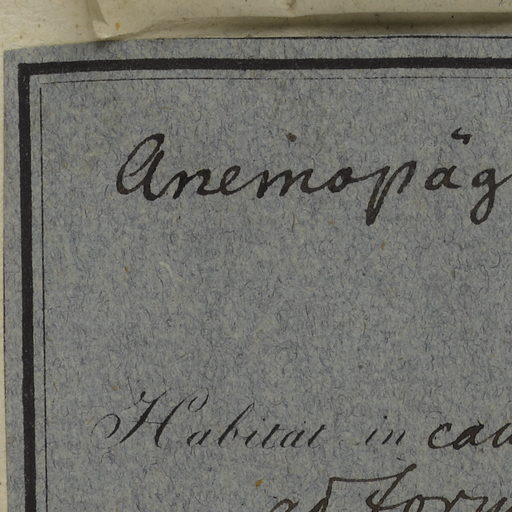 Anemopäg
Habitat in cau
ad form